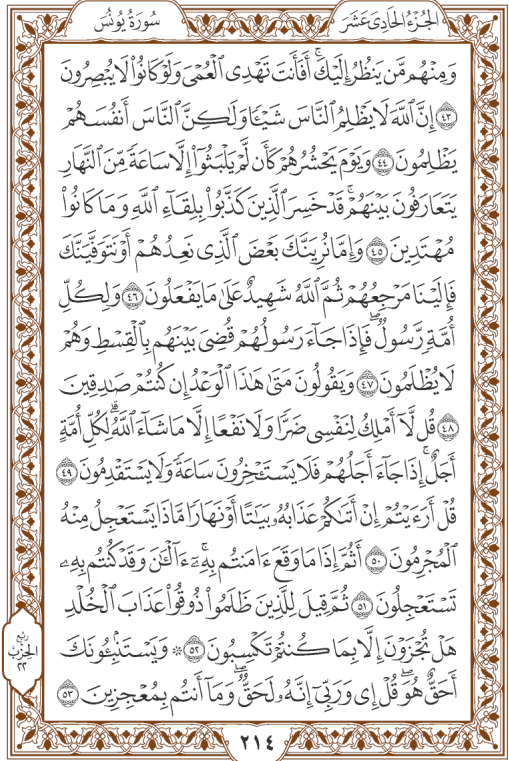 الجُزْءُ الحَادِى عَشَرَ
سُورَةُ يُونُسَ
وَمِنْهُم مَّن يَنظُرُ إِلَيْكَ ۚ أَفَأَنتَ تَهْدِى ٱلْعُمْىَ وَلَوْ كَانُوا۟ لَا يُبْصِرُونَ
٤٣ إِنَّ ٱللَّهَ لَا يَظْلِمُ ٱلنَّاسَ شَيْـًٔا وَلَـٰكِنَّ ٱلنَّاسَ أَنفُسَهُمْ
يَظْلِمُونَ ٤٤ وَيَوْمَ يَحْشُرُهُمْ كَأَن لَّمْ يَلْبَثُوٓا۟ إِلَّا سَاعَةً مِّنَ ٱلنَّهَارِ
يَتَعَارَفُونَ بَيْنَهُمْ ۚ قَدْ خَسِرَ ٱلَّذِينَ كَذَّبُوا۟ بِلِقَآءِ ٱللَّهِ وَمَا كَانُوا۟
مُهْتَدِينَ ٤٥ وَإِمَّا نُرِيَنَّكَ بَعْضَ ٱلَّذِى نَعِدُهُمْ أَوْ نَتَوَفَّيَنَّكَ
فَإِلَيْنَا مَرْجِعُهُمْ ثُمَّ ٱللَّهُ شَهِيدٌ عَلَىٰ مَا يَفْعَلُونَ ٤٦ وَلِكُلِّ
أُمَّةٍ رَّسُولٌ ۖ فَإِذَا جَآءَ رَسُولُهُمْ قُضِىَ بَيْنَهُم بِٱلْقِسْطِ وَهُمْ
لَا يُظْلَمُونَ ٤٧ وَيَقُولُونَ مَتَىٰ هَـٰذَا ٱلْوَعْدُ إِن كُنتُمْ صَـٰدِقِينَ
٤٨ قُل لَّآ أَمْلِكُ لِنَفْسِى ضَرًّا وَلَا نَفْعًا إِلَّا مَا شَآءَ ٱللَّهُ ۗ لِكُلِّ أُمَّةٍ
أَجَلٌ ۚ إِذَا جَآءَ أَجَلُهُمْ فَلَا يَسْتَـْٔخِرُونَ سَاعَةً وَلَا يَسْتَقْدِمُونَ ٤٩
قُلْ أَرَءَيْتُمْ إِنْ أَتَىٰكُمْ عَذَابُهُۥ بَيَـٰتًا أَوْ نَهَارًا مَّاذَا يَسْتَعْجِلُ مِنْهُ
ٱلْمُجْرِمُونَ ٥٠ أَثُمَّ إِذَا مَا وَقَعَ ءَامَنتُم بِهِۦٓ ۚ ءَآلْـَٔـٰنَ وَقَدْ كُنتُم بِهِۦ
تَسْتَعْجِلُونَ ٥١ ثُمَّ قِيلَ لِلَّذِينَ ظَلَمُوا۟ ذُوقُوا۟ عَذَابَ ٱلْخُلْدِ
هَلْ تُجْزَوْنَ إِلَّا بِمَا كُنتُمْ تَكْسِبُونَ ٥٢ ۞ وَيَسْتَنۢبِـُٔونَكَ
أَحَقٌّ هُوَ ۖ قُلْ إِى وَرَبِّىٓ إِنَّهُۥ لَحَقٌّ ۖ وَمَآ أَنتُم بِمُعْجِزِينَ ٥٣
رُبْع
الحِزْب
٢٢
٢١٤